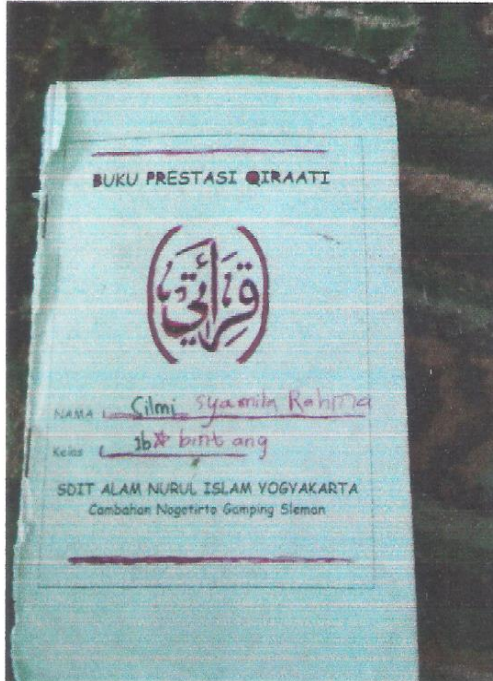 BUKU PRESTASI QIRAATI
قِرَاءَتِي
NAMA : Silmi Syamila Rahma
Kelas : 2b☆ bintang
SDIT ALAM NURUL ISLAM YOGYAKARTA
Cambahan Nogotirto Gamping Sleman